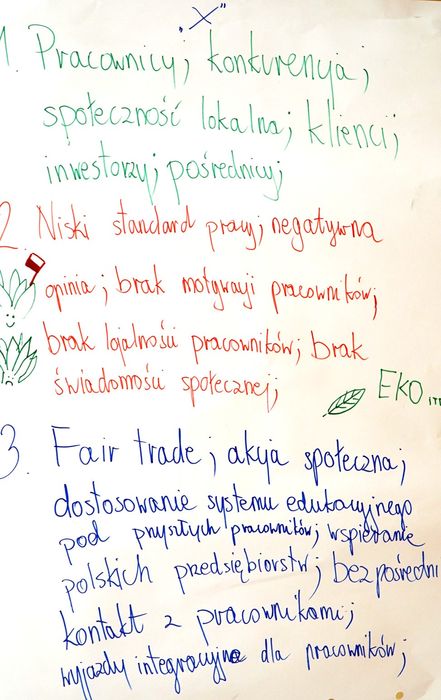 "X"
1. Pracownicy; konkurencja;
społeczność lokalna; klienci;
inwestorzy; pośrednicy;
2. Niski standard pracy; negatywna
opinia; brak motywacji pracowników;
brak lojalności pracowników; brak
świadomości społecznej;
EKO
3. Fair trade; akcja społeczna;
dostosowanie systemu edukacyjnego
pod przyszłych pracowników; wspieranie
polskich przedsiębiorstw; bezpośredni
kontakt z pracownikami;
wyjazdy integracyjne dla pracowników;